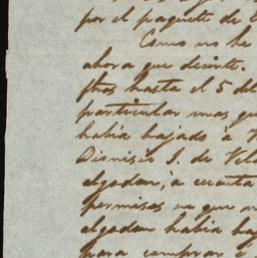 por el paquete de
Como no he
ahora que decirte.
fhas hasta el 5 del
particular mas que
habia bajado à
Dionisio J. de
algodon, à cuenta
permisos
algodon habia
para comprar